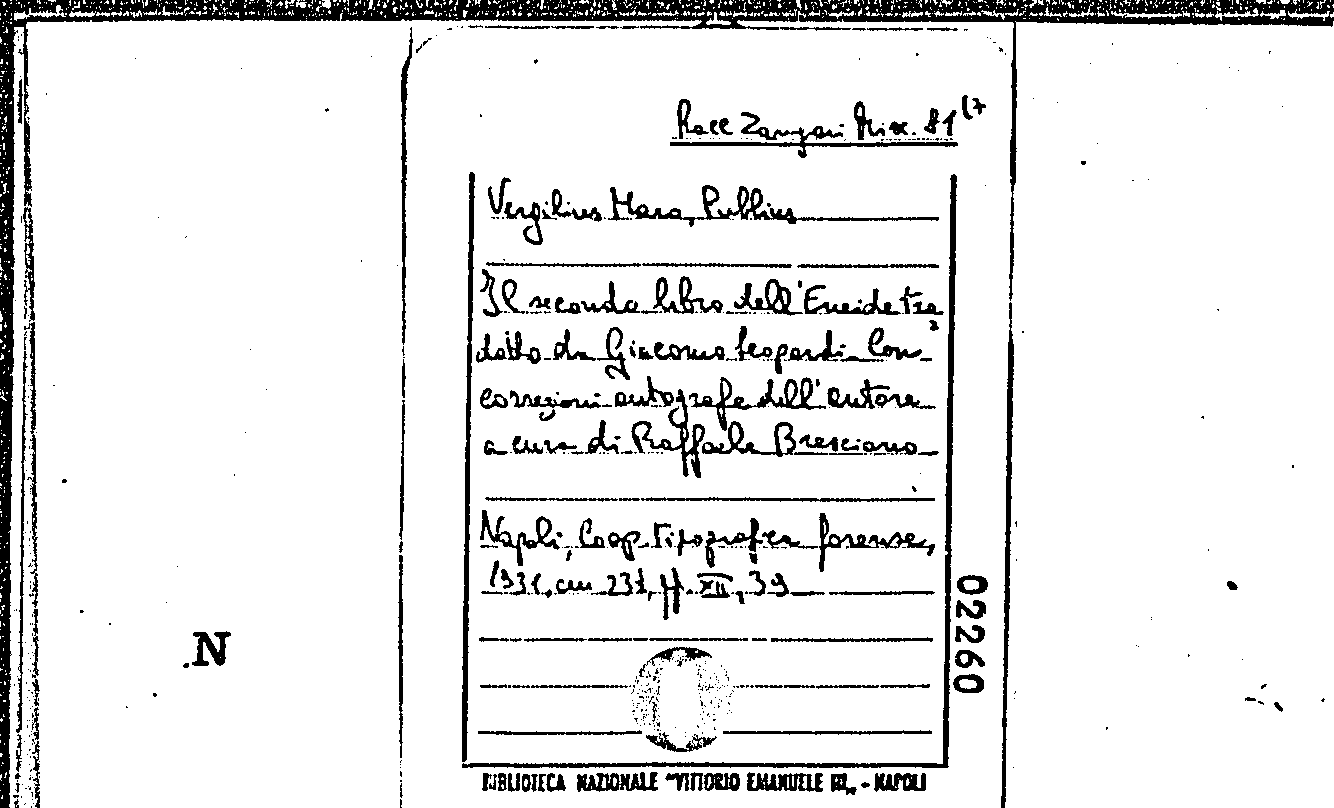 Racc Zangari Misc. 81 (7
Vergilius Maro, Publius
Il secondo libro dell'Eneide tra
dotto da Giacomo Leopardi Con
correzioni autografe dell'autore
a cura di Raffaele Bresciano
Napoli, Coop. Tipografica forense,
1931, cm 23½, pp. XII, 39
02260
N
BIBLIOTECA NAZIONALE "VITTORIO EMANUELE III„ - NAPOLI